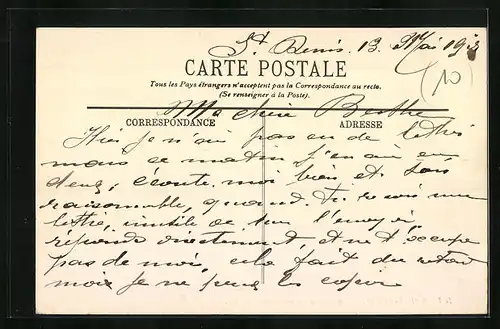 St Denis. 13 Mai 19
(10)
CARTE POSTALE
Tous les Pays étrangers n'acceptent pas la Correspondance au recto.
(Se renseigner à la Poste).
Ma chère Berthe
CORRESPONDANCE ADRESSE
Hier je n'ai pas eu de lettre
mais ce matin j'en ai eu
deux, écoute moi bien et sois
raisonnable, quand tu reçois une
lettre, inutile de me l'envoyer
réponds directement, et ne t'occupe
pas de moi, cela fait du retard
moi je ne peux les copier